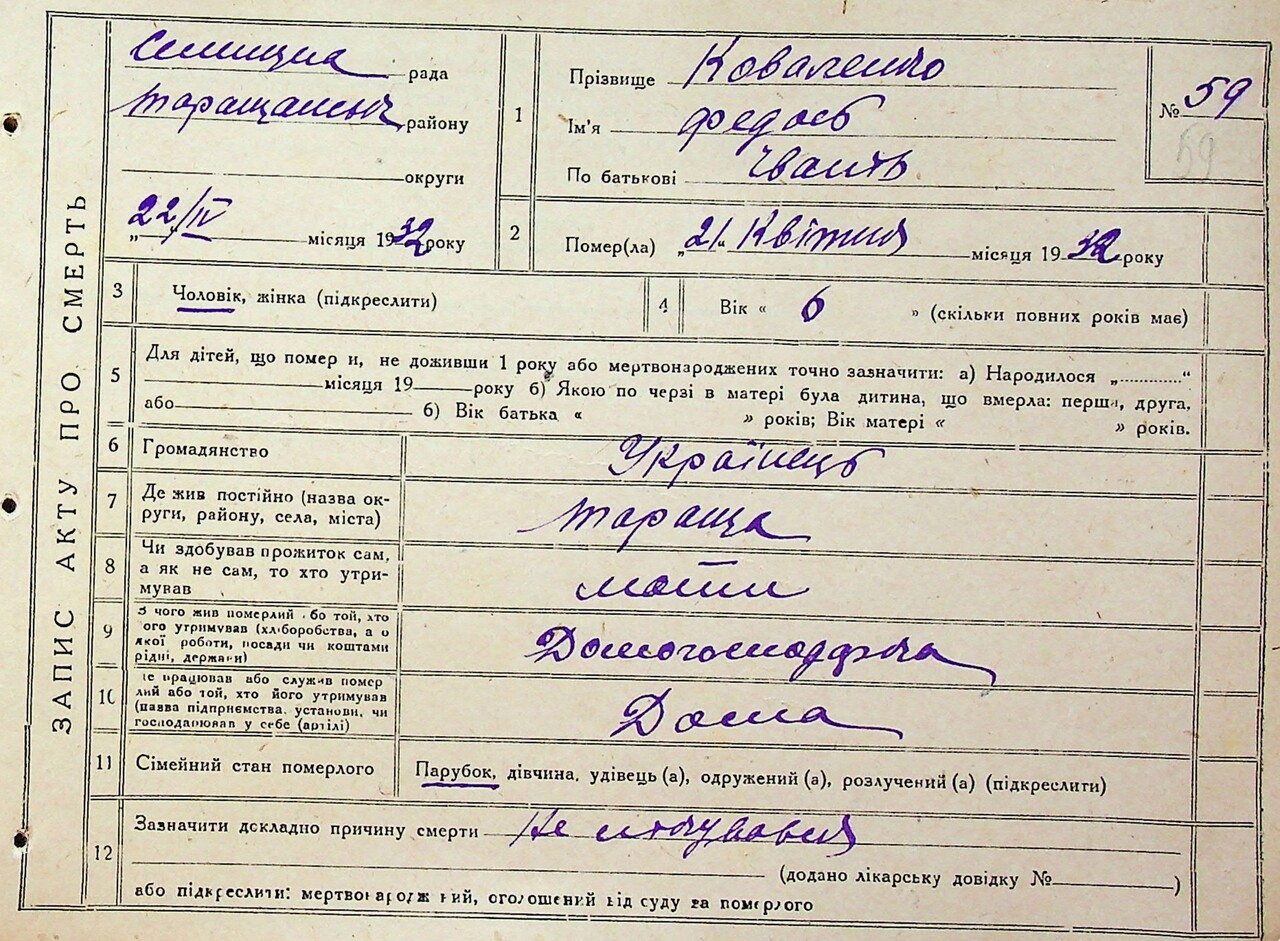 ЗАПИС АКТУ ПРО СМЕРТЬ
Селищна рада
Таращанськ. району
округи
„22/IV місяця 1932 року
1
Прізвище Коваленко
Ім'я Федось
По батькові Іванів
№ 59
59
2
Помер(ла) „21" Квітня місяця 1932 року
3
Чоловік, жінка (підкреслити)
4
Вік « 6 » (скільки повних років має)
5
Для дітей, що помер и, не доживши 1 року або мертвонароджених точно зазначити: а) Народилося „............"
місяця 19 року б) Якою по черзі в матері була дитина, що вмерла: перша, друга,
або 6) Вік батька « » років; Вік матері « » років.
6
Громадянство
Українець
7
Де жив постійно (назва ок-
руги, району, села, міста)
Тараща
8
Чи здобував прожиток сам,
а як не сам, то хто утри-
мував
мати
9
З чого жив померлий бо той, хто
ого утримував (хліборобства, а о
якої роботи, посади чи коштами
рідні, держави)
Домогосподарка
10
е працював або служив помер
лий або той, хто його утримував
(назва підприємства, установи, чи
господарював у себе (артілі)
Дома
11
Сімейний стан померлого
Парубок, дівчина, удівець (а), одружений (а), розлучений (а) (підкреслити)
12
Зазначити докладно причину смерти Не
(додано лікарську довідку № )
або підкреслити: мертвонародж ний, оголошений від суду за померлого